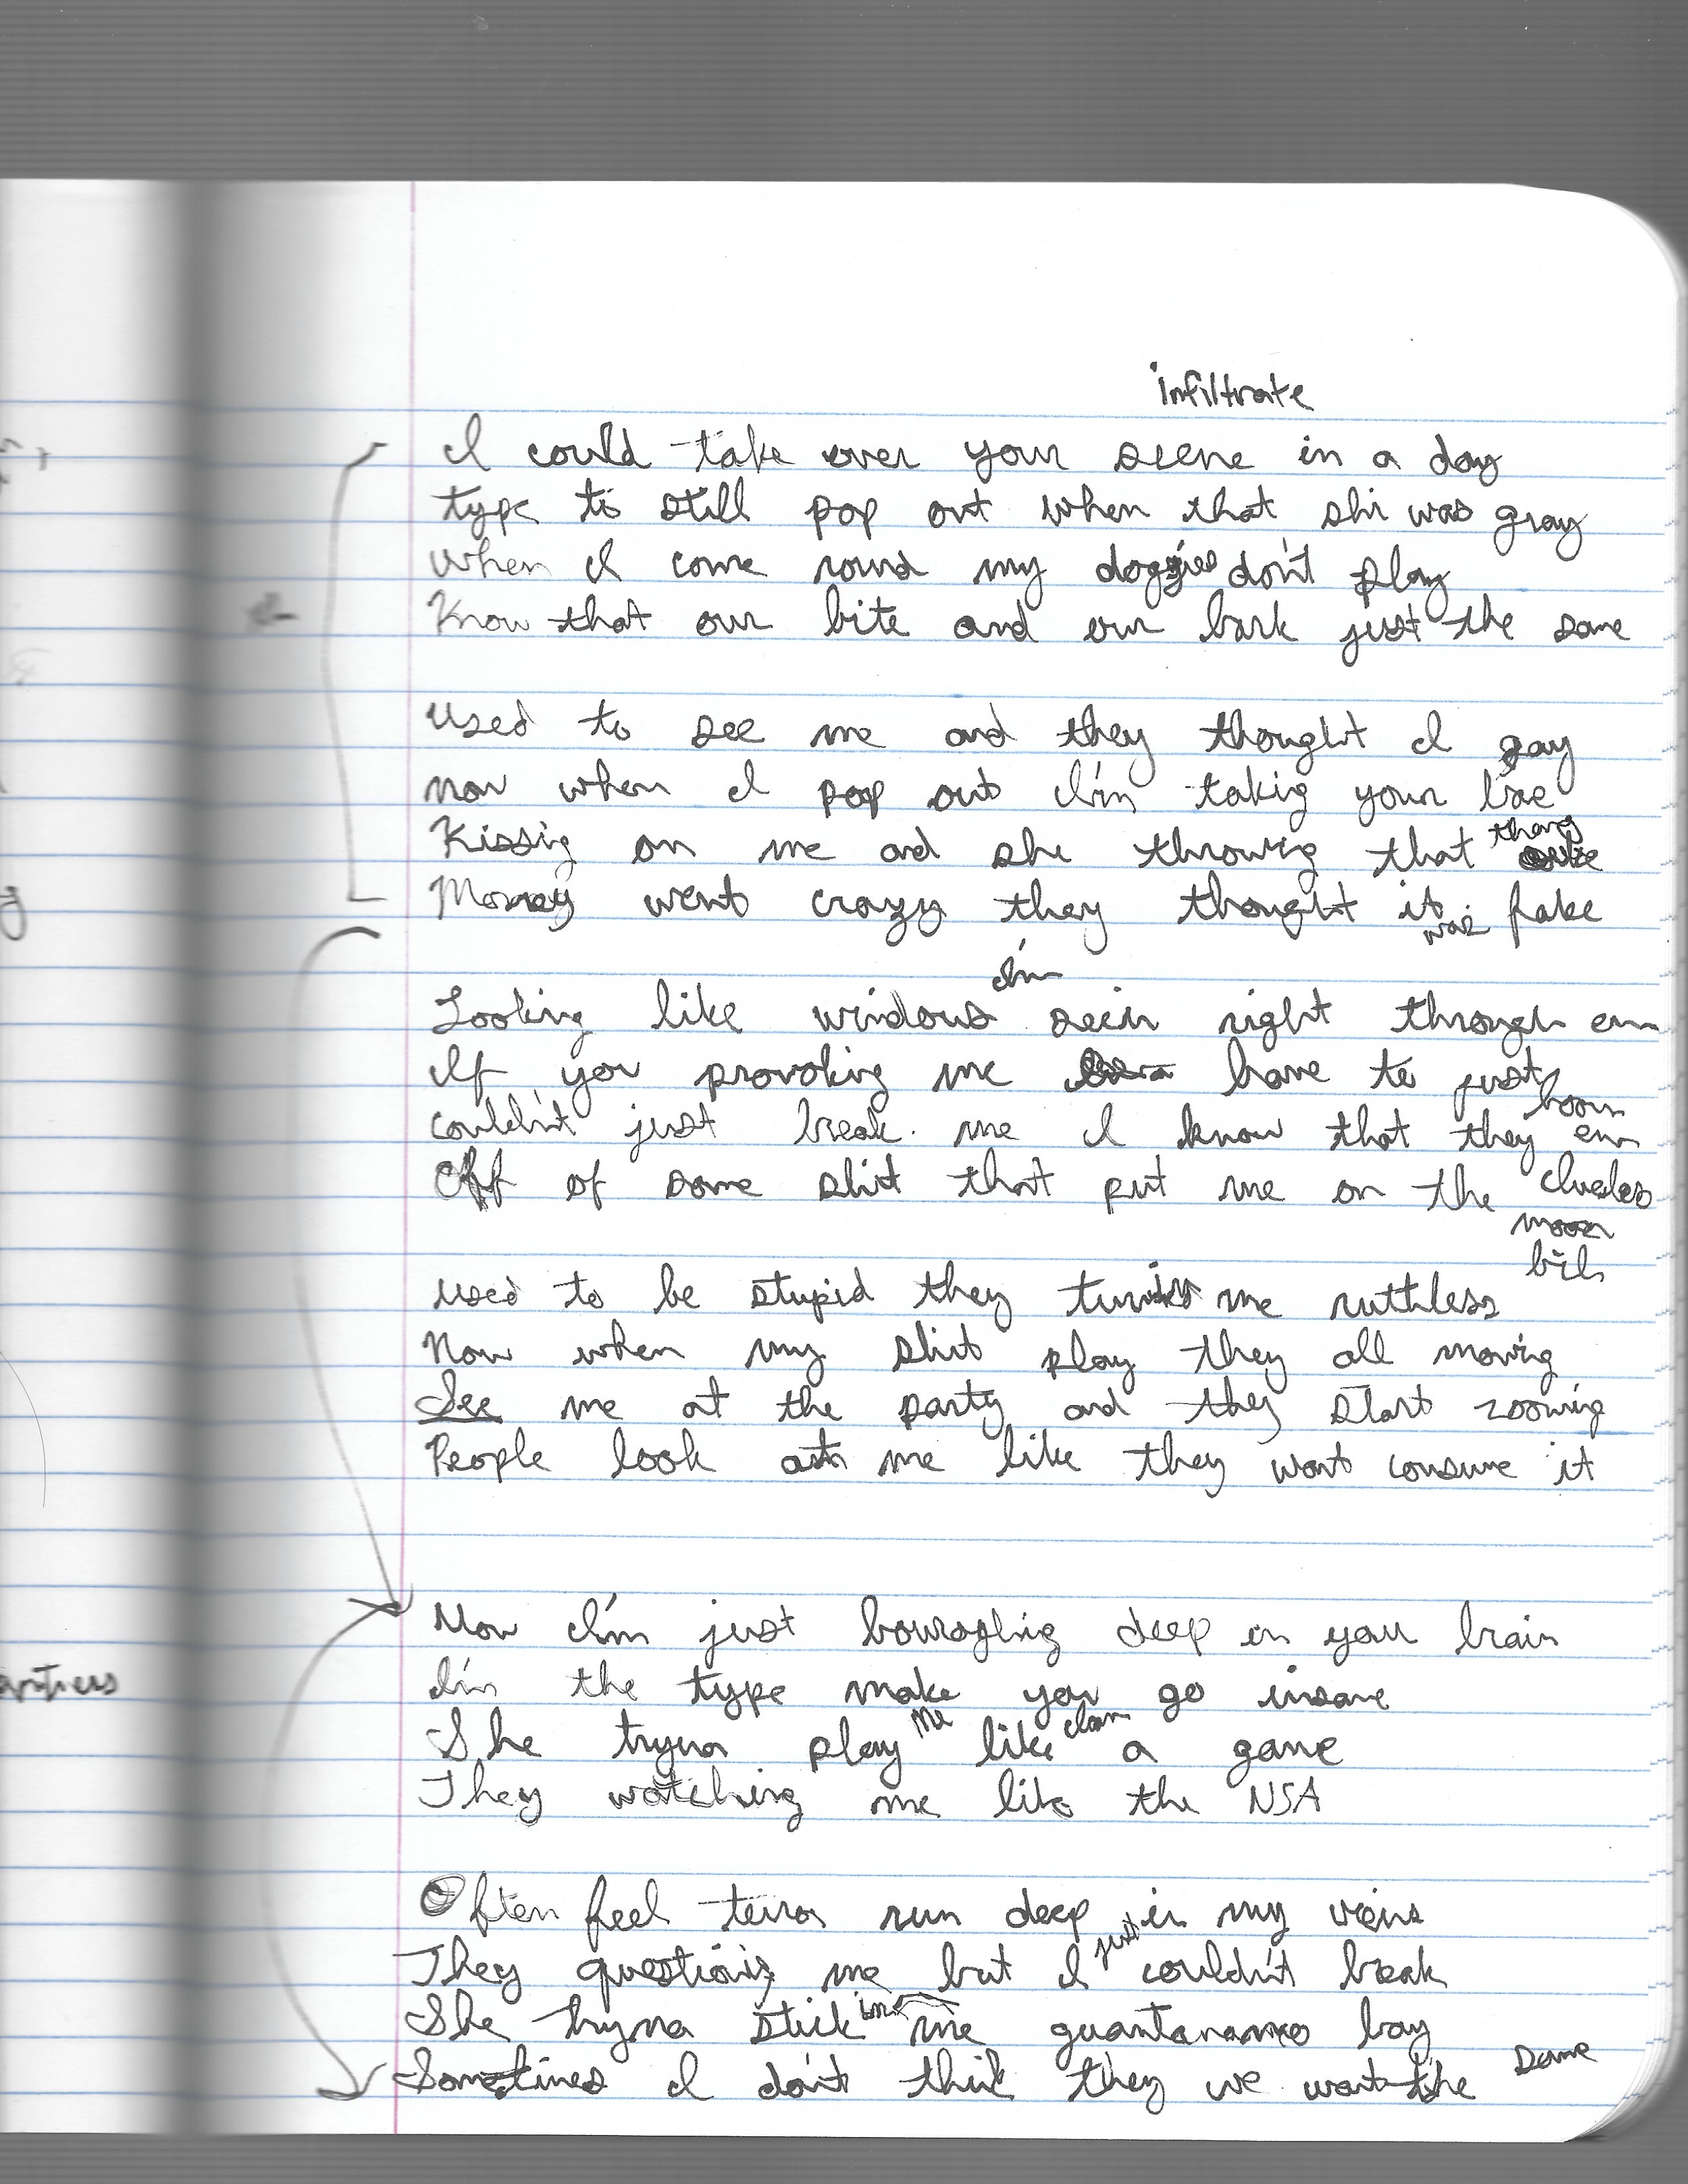 infiltrate
I could take over your scene in a day
type to still pop out when that shi was gray
when I come round my doggies don't play
Know that our bite and our bark just the same
Used to see me and they thought I gay
now when I pop out I'm taking your bae
Kissig on me and she throwing that thang
Money went crazy they thought it was fake
Looking like windows I'm seein right through em
If you provoking me have to just boom
couldn't just break me I know that they em
Off of some shit that put me on the clueless
moon
bih
used to be stupid they turnin me ruthless
Now when my shit play they all moving
See me at the party and they start zooming
People look at me like they want consume it
Now I'm just bouroghing deep in your brain
I'm the type make you go insane
She tryna play me like I am a game
They watching me like the NSA
Often feel terror run deep in my veins
They questioning me but I just couldn't break
She tryna stick me in guantanamo bay
Sometimes I don't think they we want the same